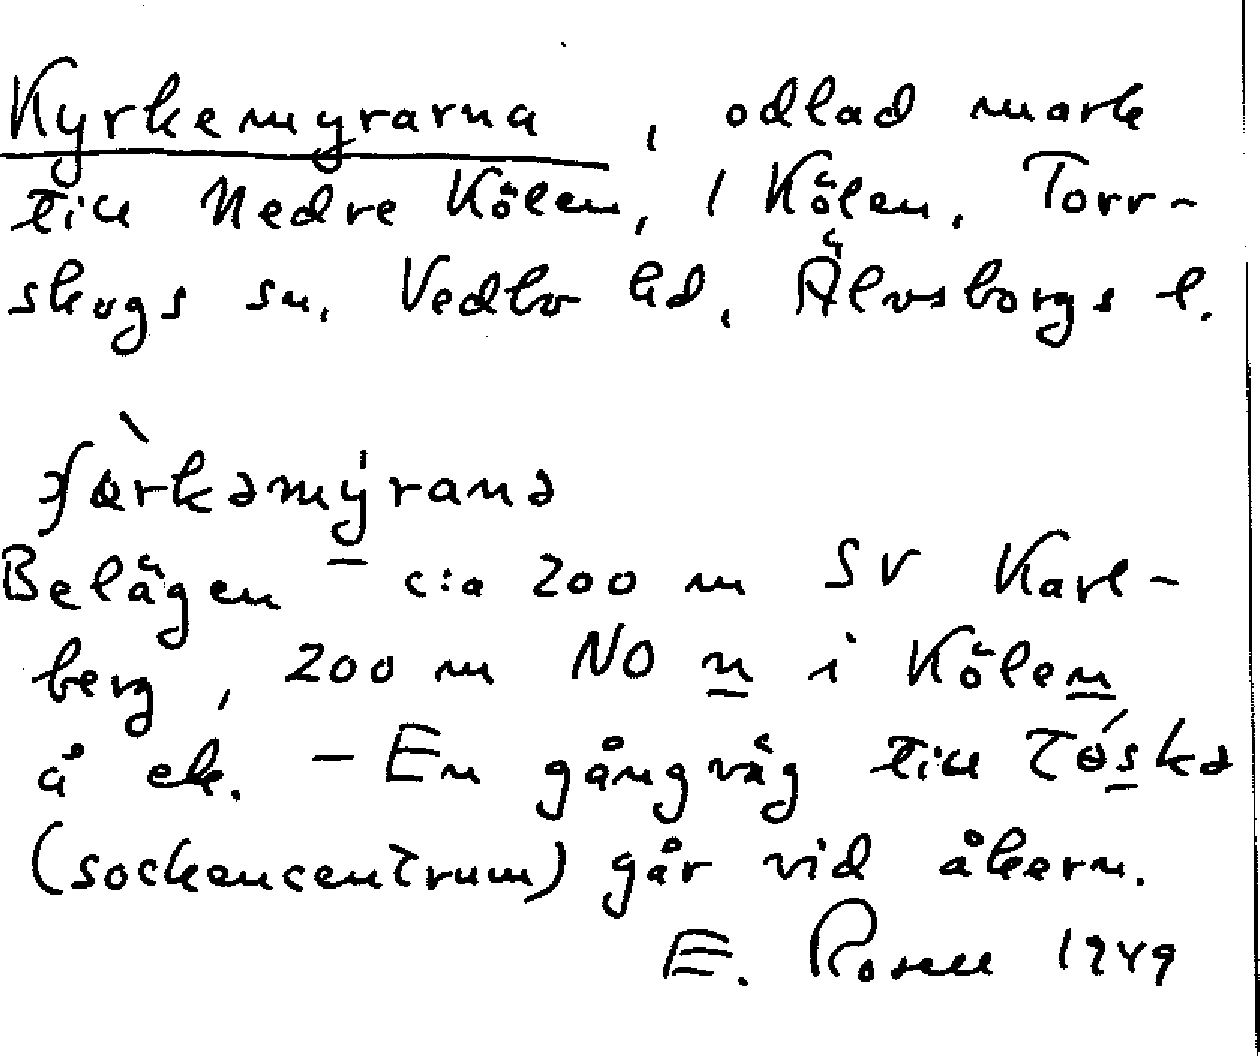 Kyrkemyrarna, odlad mark
till Nedre Kölen, 1 Kölen, Torr-
skogs sn, Vedbo hd, Älvsborgs l.
Belägen c:a 200 m SV Karl-
berg, 200 m NO n i Kölen
å ek. - En gångväg till Tóska
(sockencentrum) går vid åkern.
E. Rosell 1949